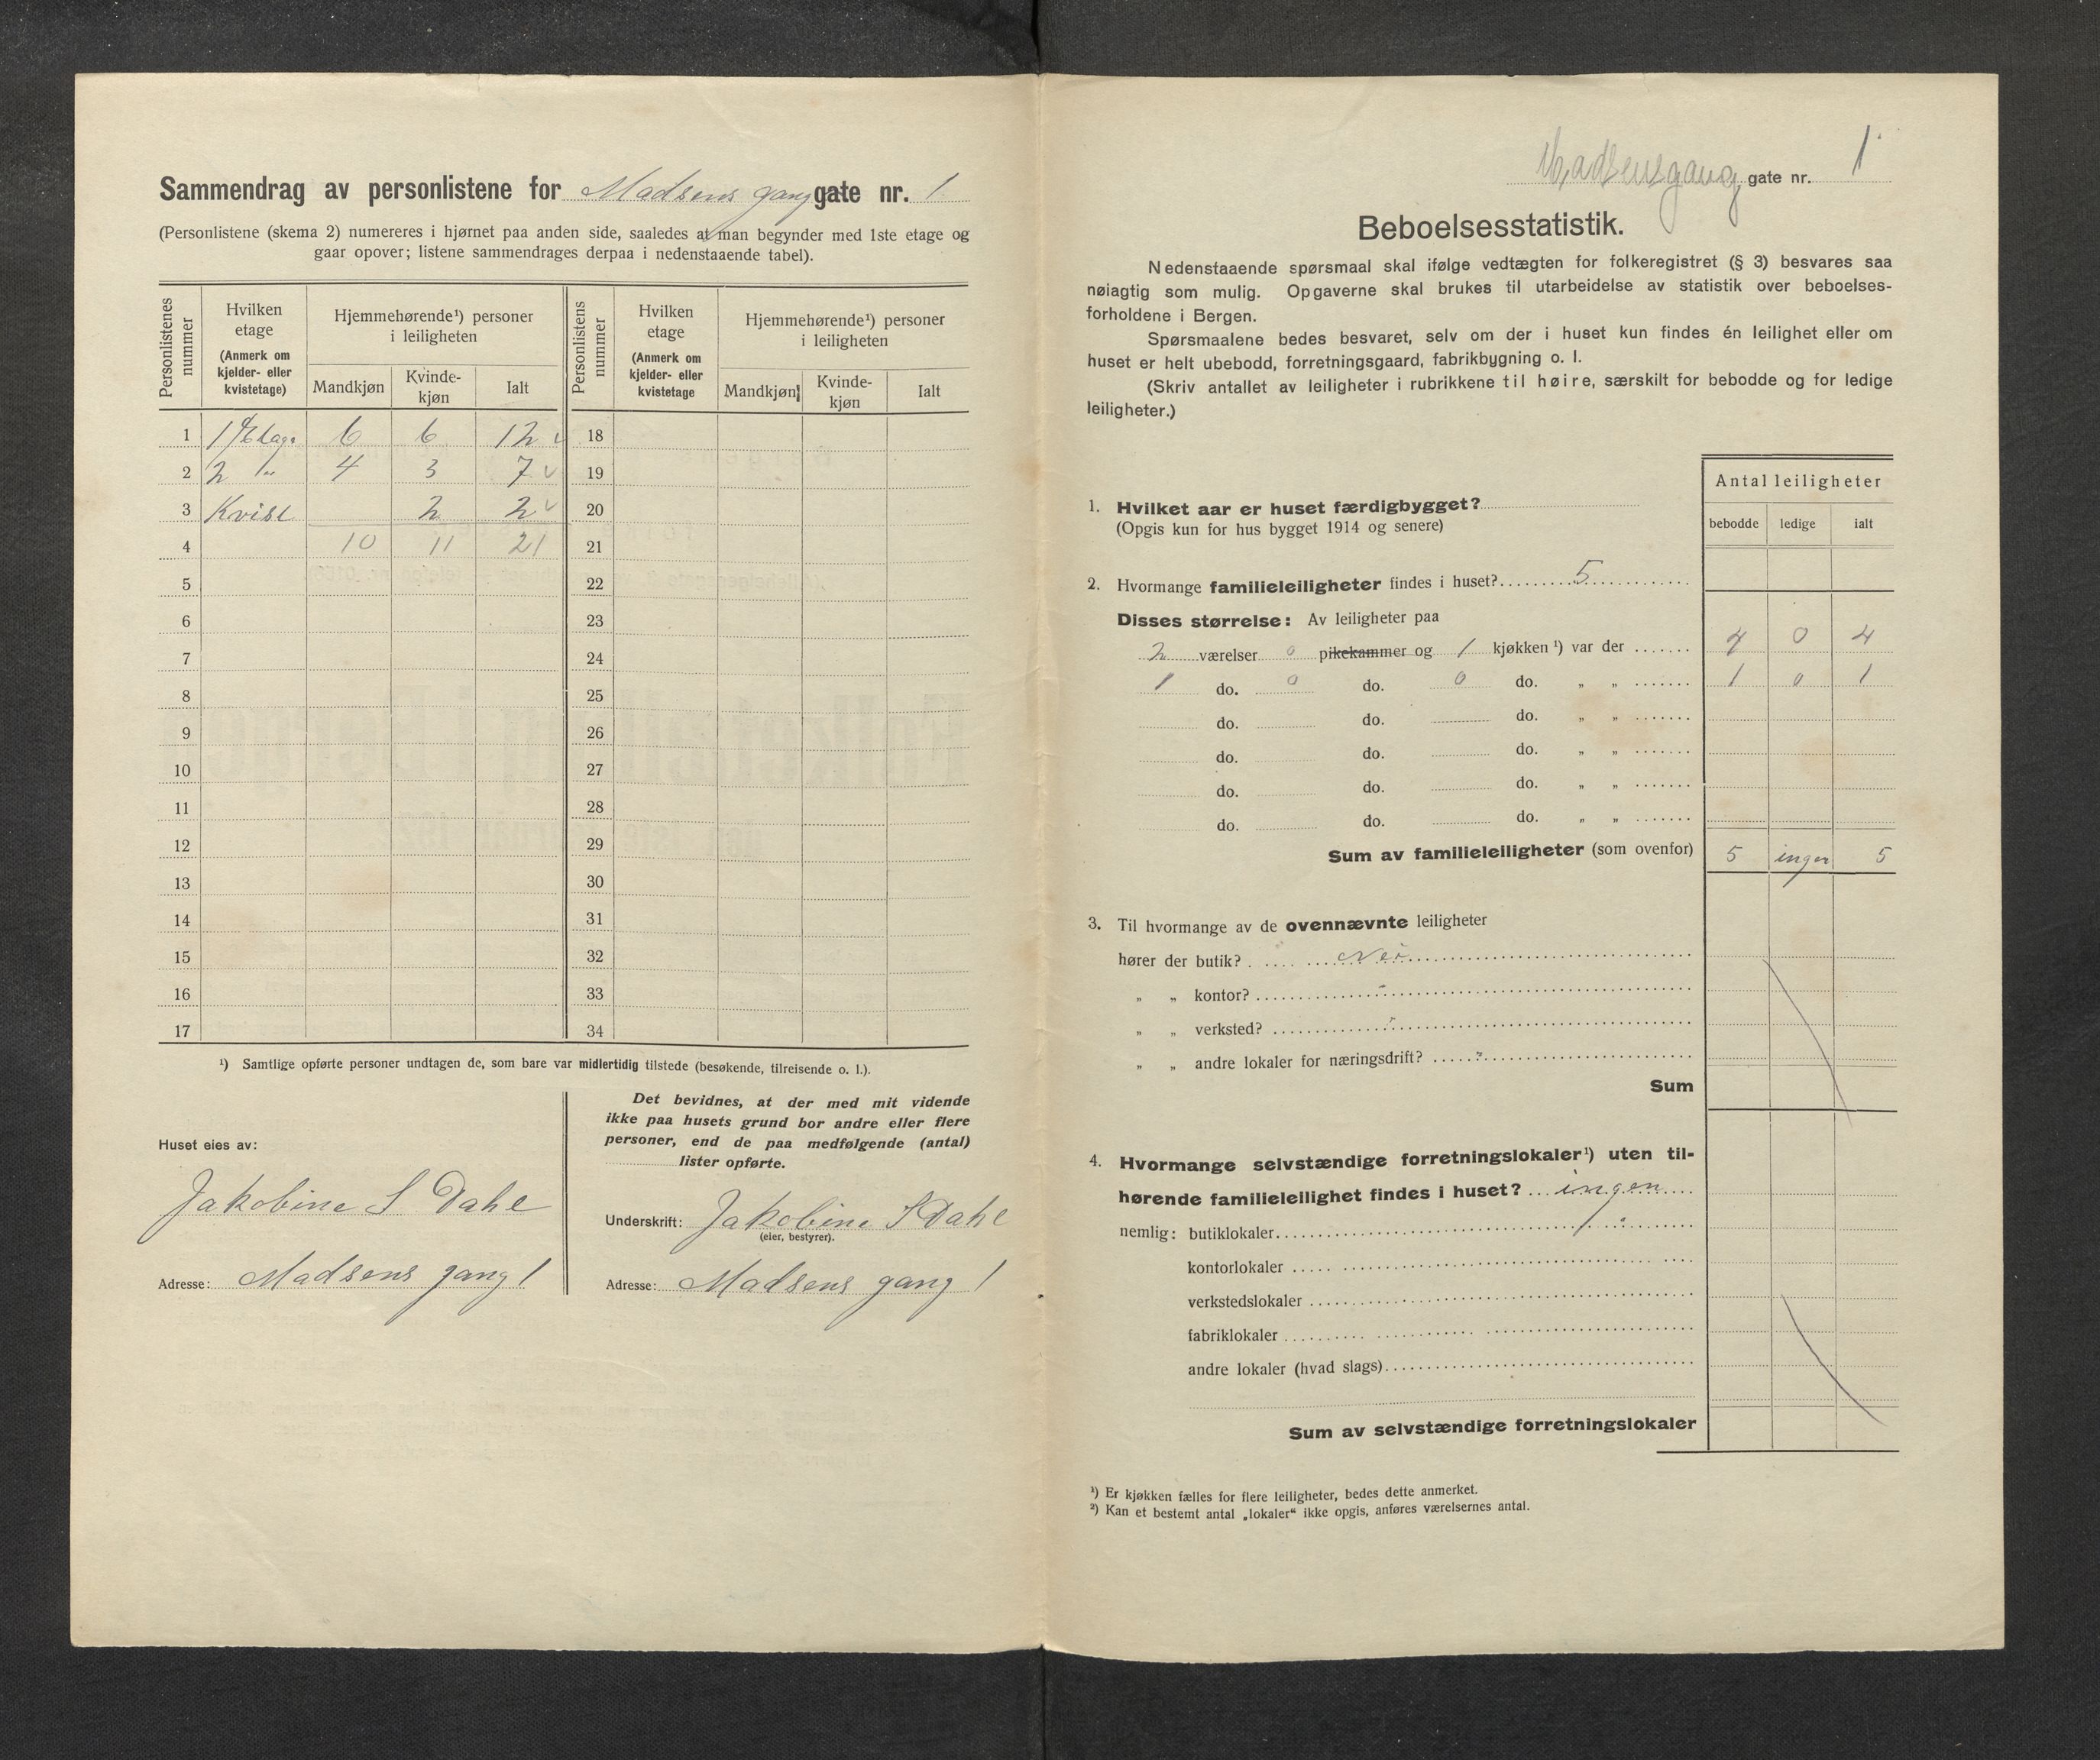 Sammendrag av personlistene for Madsens gang gate nr. 1
(Personlistene (skema 2) numereres i hjørnet paa anden side, saaledes at man begynder med 1ste etage og
gaar opover; listene sammendrages derpaa i nedenstaaende tabel).
Personlistenes nummer
Hvilken etage (Anmerk om kjelder- eller kvistetage)
Hjemmehørende¹) personer i leiligheten
Mandkjøn Kvinde-kjøn Ialt
Personlistens nummer
Hvilken etage (Anmerk om kjelder- eller kvistetage
Hjemmehørende¹) personer i leiligheten
Mandkjøn Kvinde-kjøn Ialt
1 1 Etage 6 6 12 18
2 2 " 4 3 7 19
3 Kvist 2 2 20
4 10 11 21 21
5 22
6 23
7 24
8 25
9 26
10 27
11 28
12 29
13 30
14 31
15 32
16 33
17 34
¹) Samtlige opførte personer undtagen de, som bare var midlertidig tilstede (besøkende, tilreisende o. l.).
Huset eies av:
Jakobine S Dahl
Adresse: Madsens gang 1
Det bevidnes, at der med mit vidende
ikke paa husets grund bor andre eller flere
personer, end de paa medfølgende (antal)
lister opførte.
Underskrift: Jakobine S Dahl
(eier, bestyrer).
Adresse: Madsens gang 1
Madsensgang gate nr. 1
Beboelsesstatistik.
Nedenstaaende spørsmaal skal ifølge vedtægten for folkeregistret (§ 3) besvares saa
nøiagtig som mulig. Opgaverne skal brukes til utarbeidelse av statistik over beboelses-
forholdene i Bergen.
Spørsmaalene bedes besvaret, selv om der i huset kun findes én leilighet eller om
huset er helt ubebodd, forretningsgaard, fabrikbygning o. l.
(Skriv antallet av leiligheter i rubrikkene til høire, særskilt for bebodde og for ledige
leiligheter.)
Antal leiligheter
bebodde ledige ialt
1. Hvilket aar er huset færdigbygget?
(Opgis kun for hus bygget 1914 og senere)
2. Hvormange familieleiligheter findes i huset? 5
Disses størrelse: Av leiligheter paa
2 værelser 0 pikekammer og 1 kjøkken¹) var der 4 0 4
1 do. 0 do. 0 do. „ „ 1 0 1
do. do. do. „ „
do. do. do. „ „
do. do. do. „ „
do. do. do. „ „
Sum av familieleiligheter (som ovenfor) 5 ingen 5
3. Til hvormange av de ovennævnte leiligheter
hører der butik? Nei
„ „ kontor?
„ „ verksted?
„ „ andre lokaler for næringsdrift?
Sum
4. Hvormange selvstændige forretningslokaler¹) uten til-
hørende familieleilighet findes i huset? ingen
nemlig: butiklokaler
kontorlokaler
verkstedslokaler
fabriklokaler
andre lokaler (hvad slags)
Sum av selvstændige forretningslokaler
¹) Er kjøkken fælles for flere leiligheter, bedes dette anmerket.
²) Kan et bestemt antal „lokaler“ ikke opgis, anføres værelsernes antal.